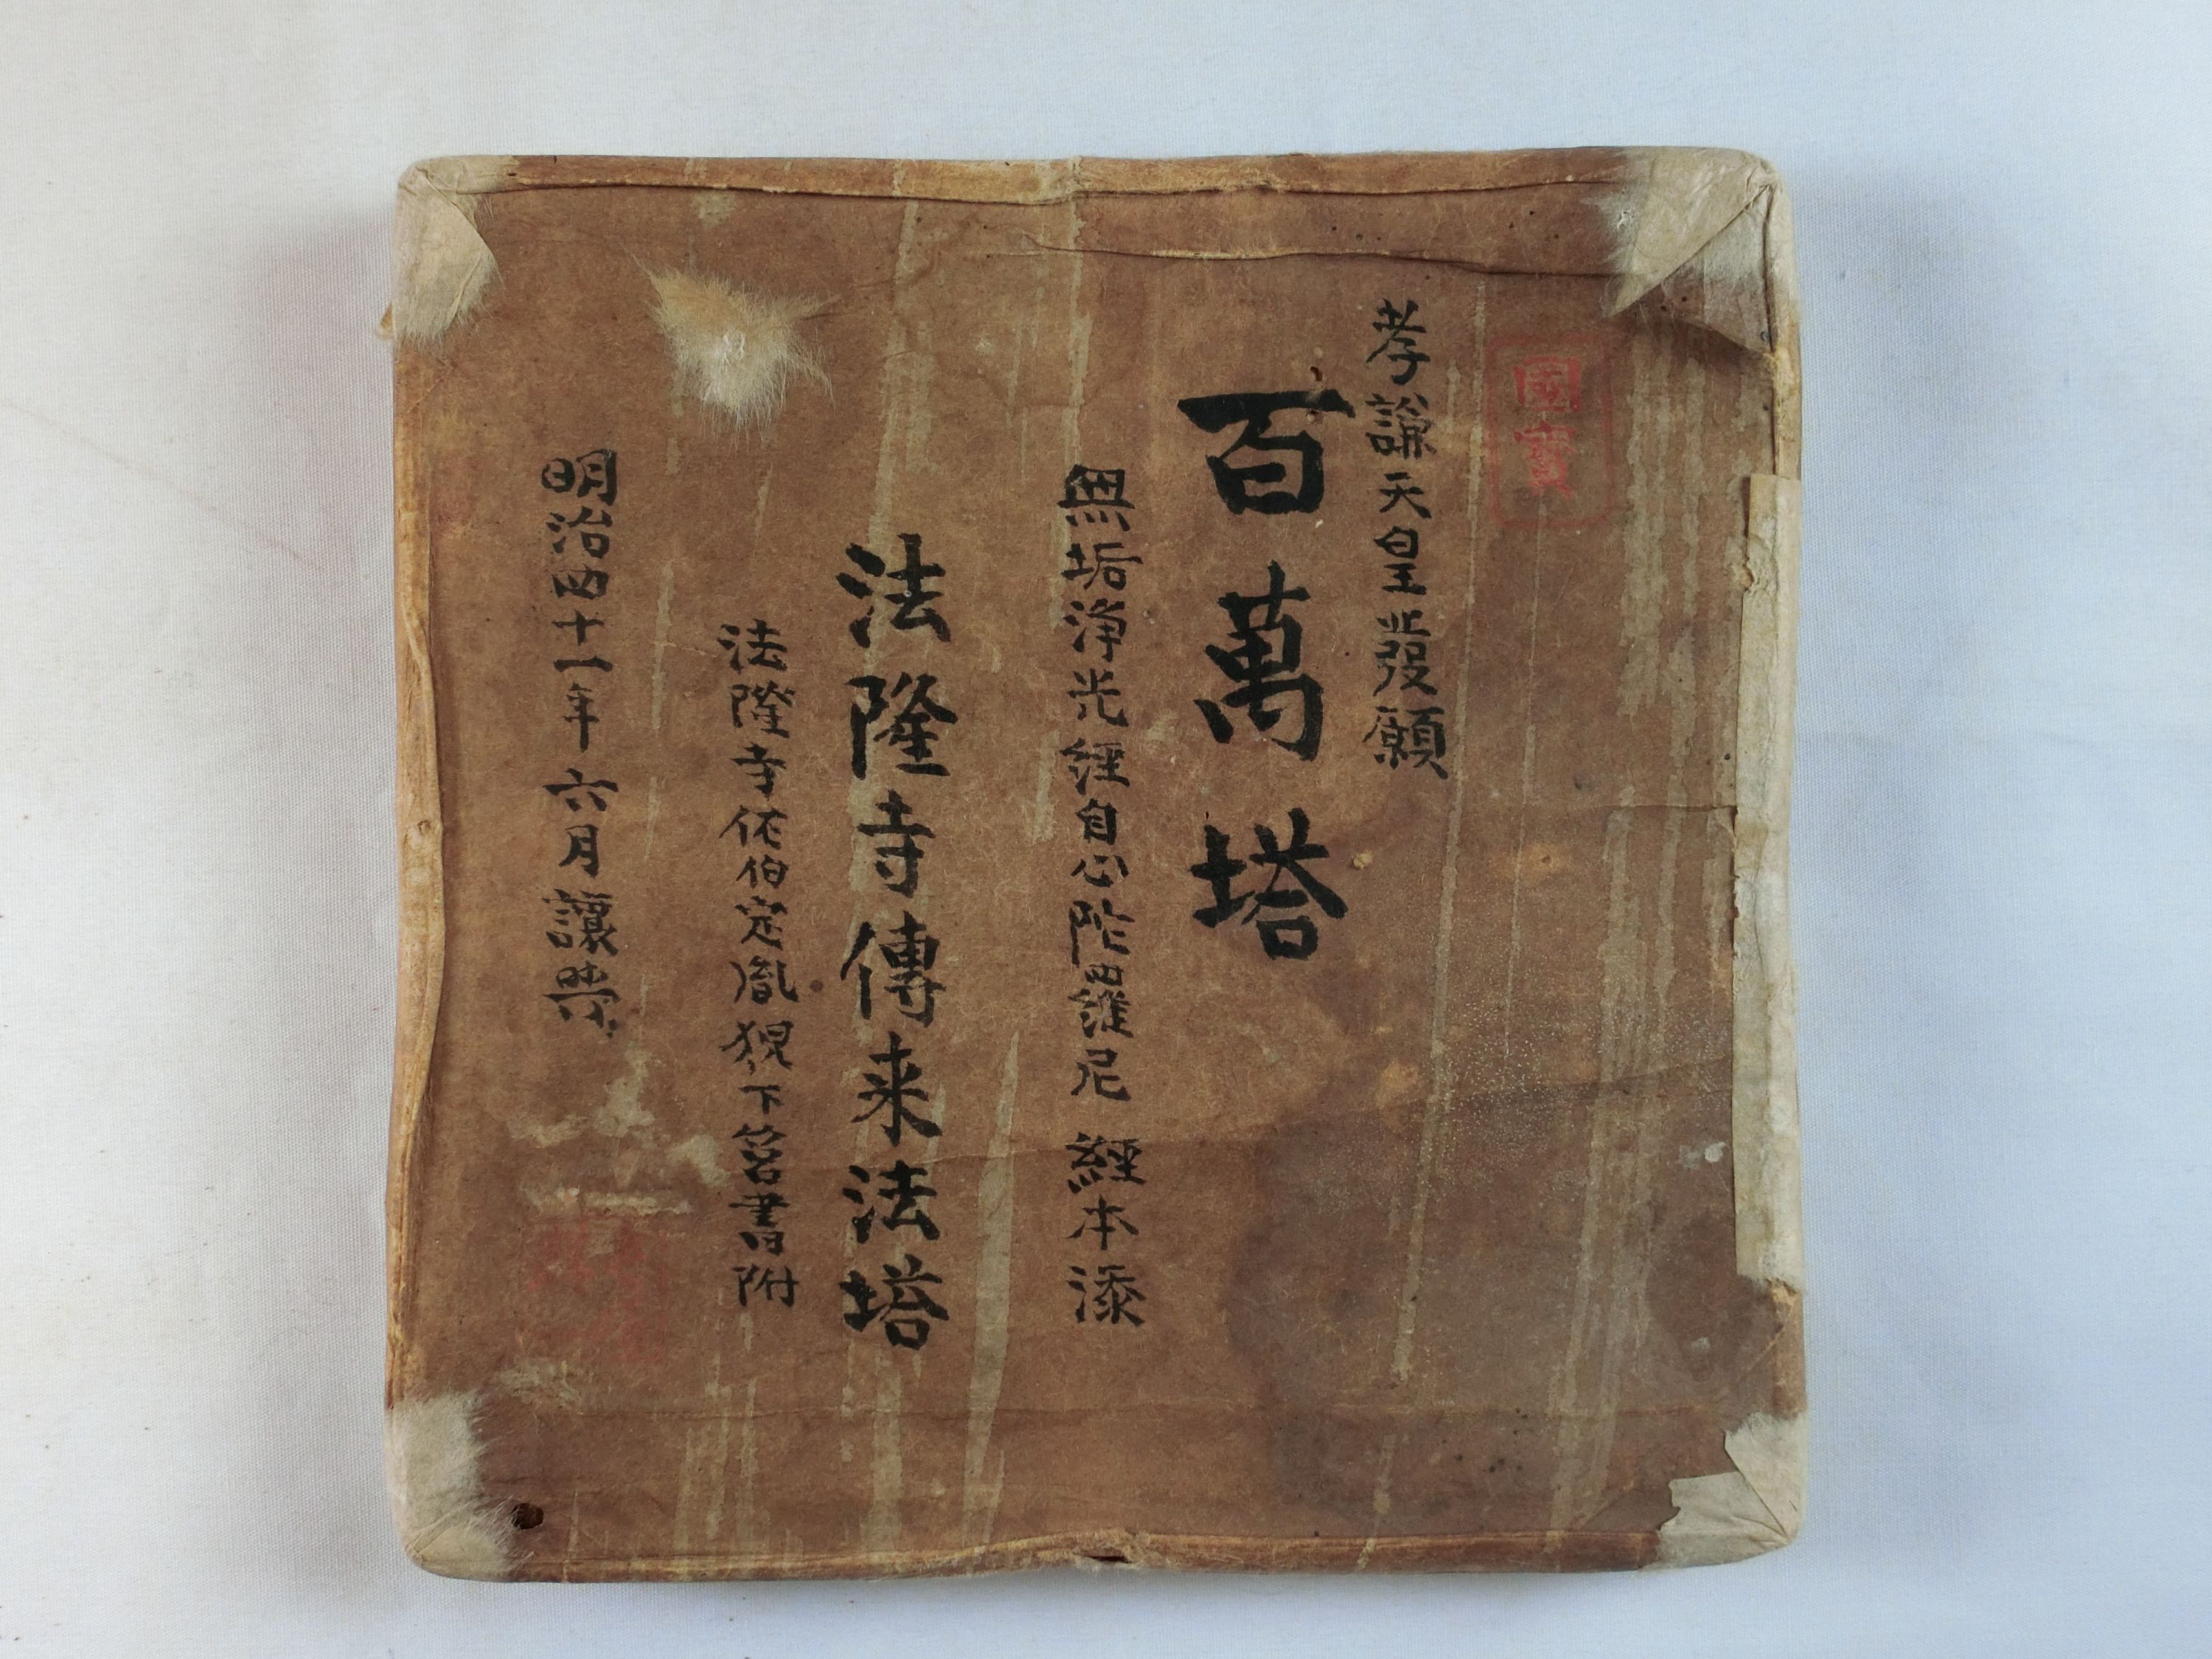 國寶
孝謙天皇발發願
百萬塔
無垢淨光經自心陀羅尼 經本添
法隆寺傳来法塔
法隆寺佐伯定胤猊下筥書附
明治四十一年 六月 譲禁